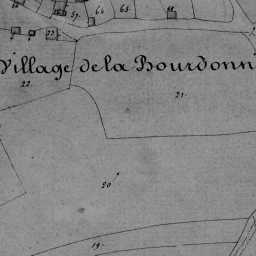 57.
64
65.
Village de la Bourdonn
22.
21.
20
19.